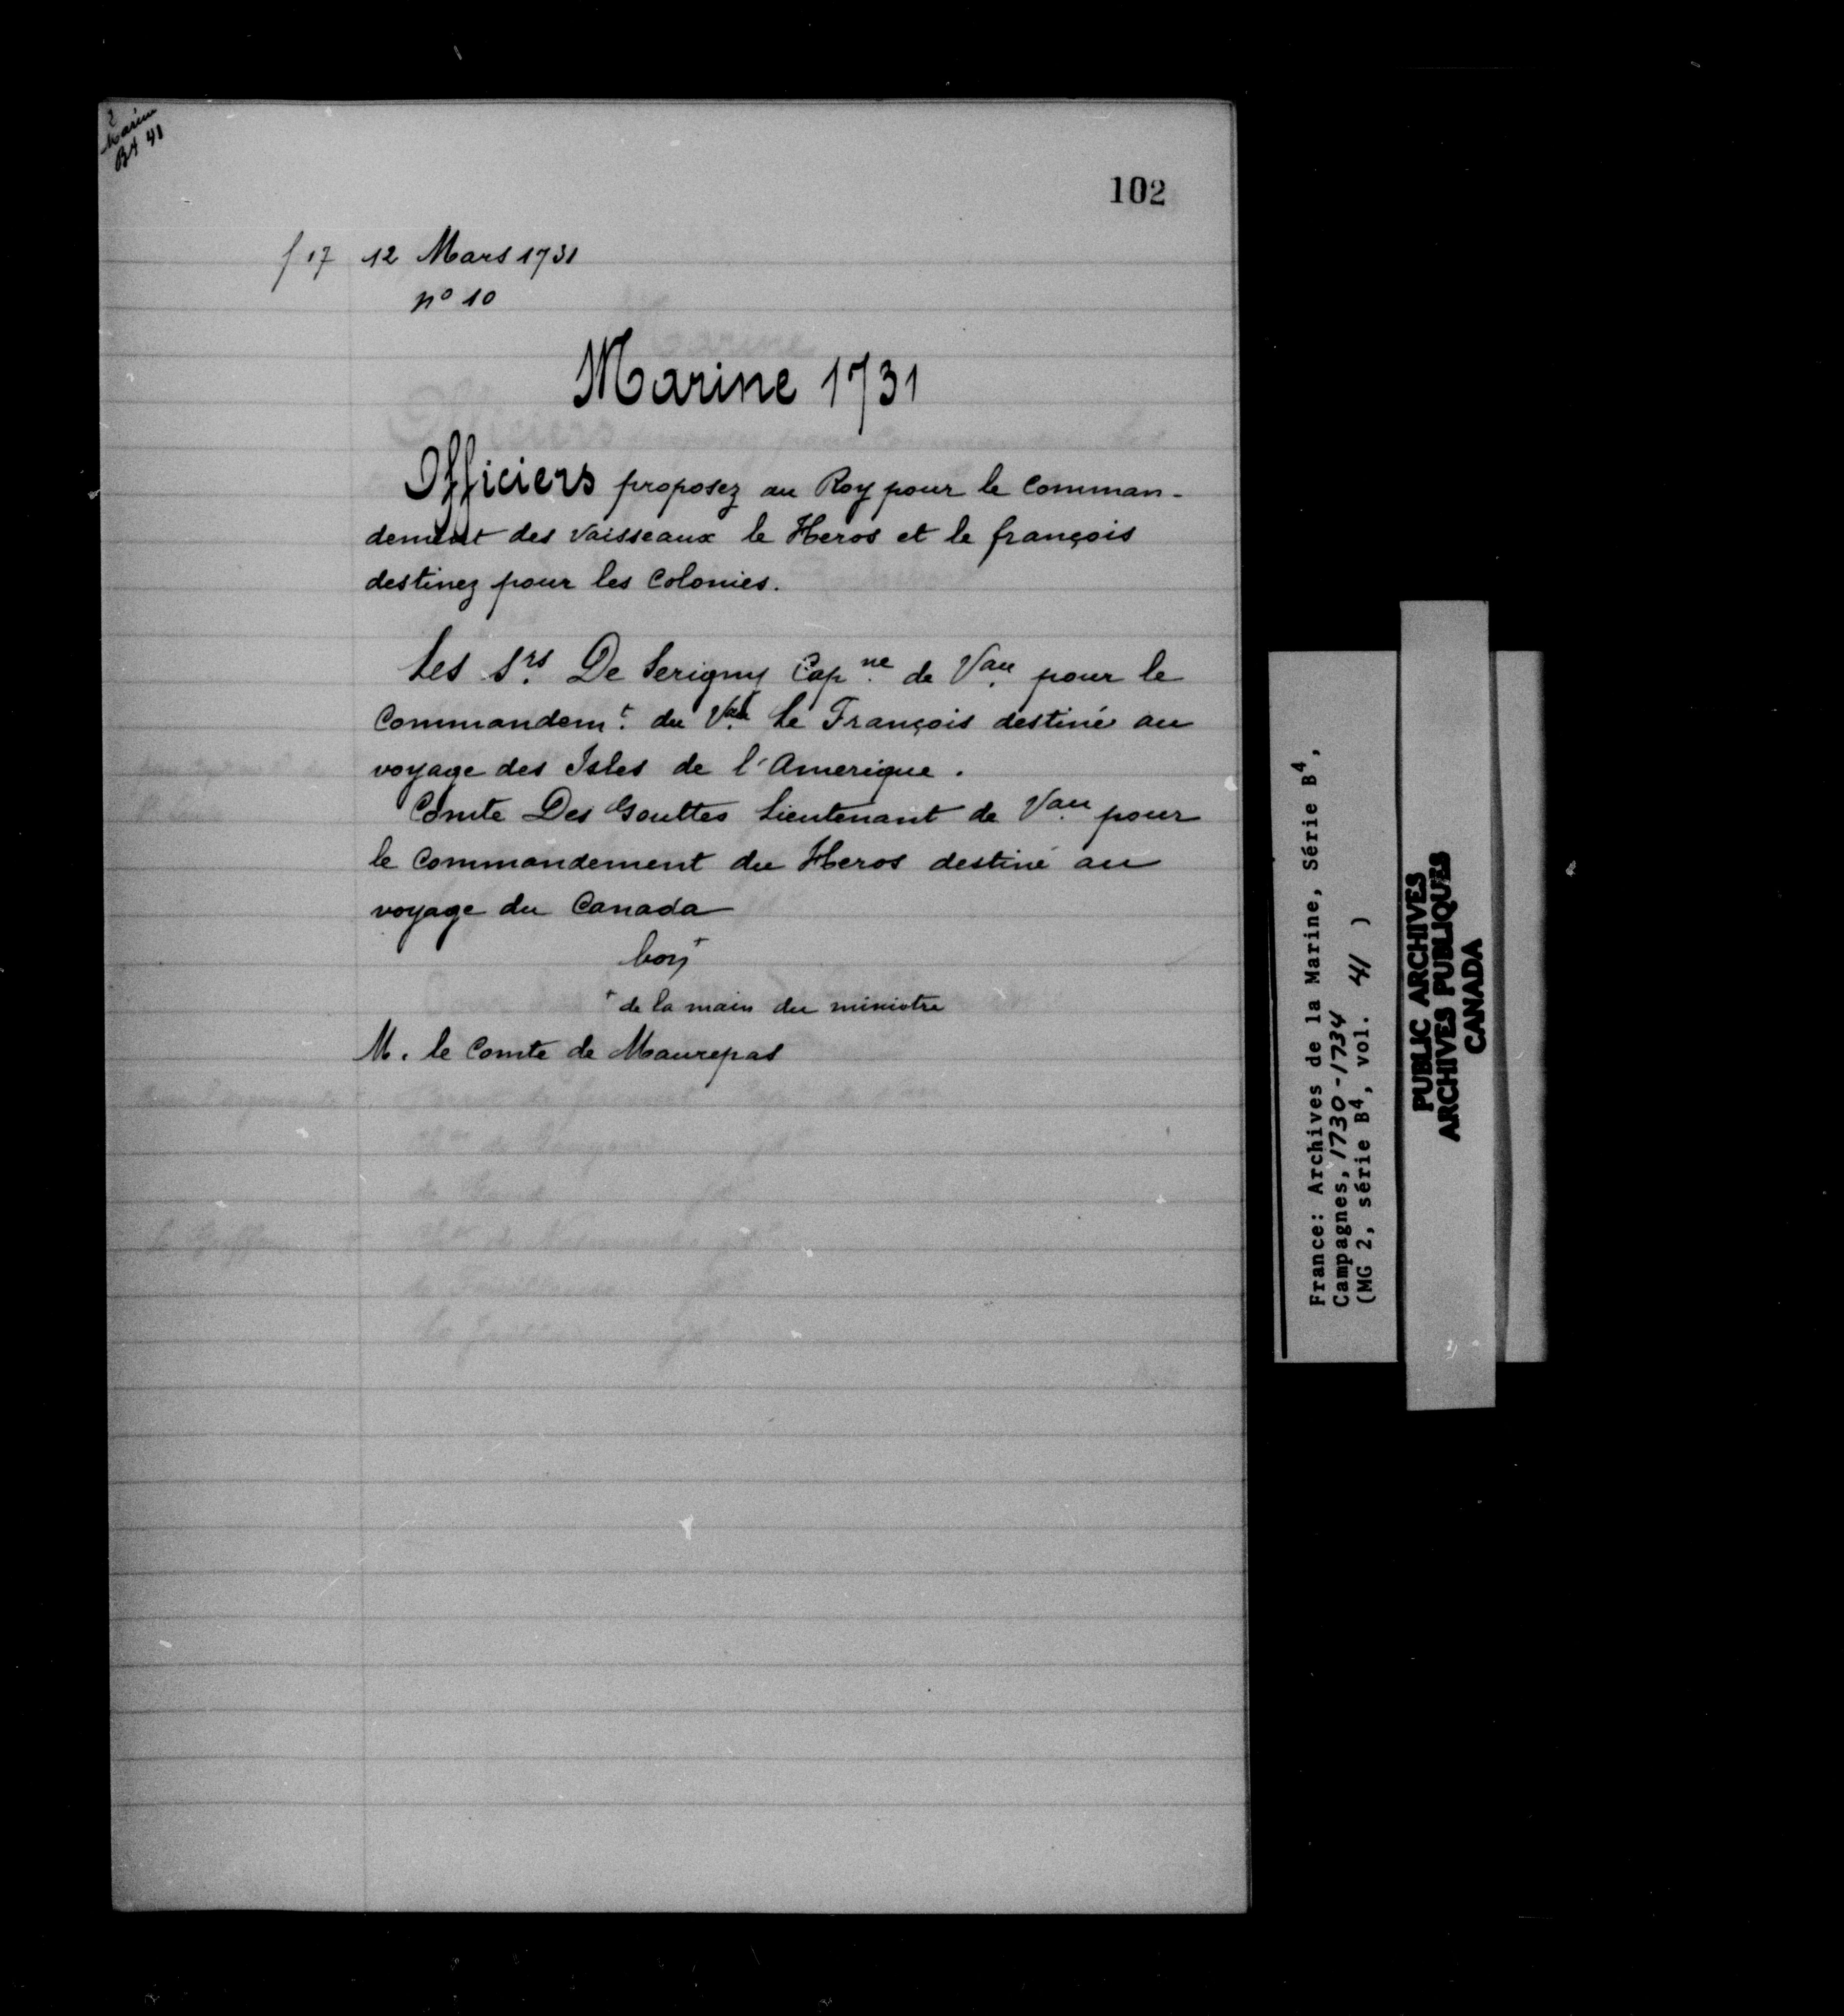 Marine
B4 41
102
f 17 12 Mars 1731
nº 10
Marine 1731
Officiers proposez au Roy pour le Comman-
dement des Vaisseaux le Heros et le françois
destinez pour les Colonies.
Les Srs. De Serigny Capne. de Vau. pour le
Commandemt. du Vau. le François destiné au
voyage des Isles de l'Amerique.
Comte Des Gouttes Lieutenant de Vau. pour
le Commandement du Heros destiné au
voyage du Canada
bon +
+ de la main du ministre
M. le Comte de Maurepas
France: Archives de la Marine, Série B4,
Campagnes, 1730-1734
(MG 2, série B4, vol. 41 )
PUBLIC ARCHIVES
ARCHIVES PUBLIQUES
CANADA